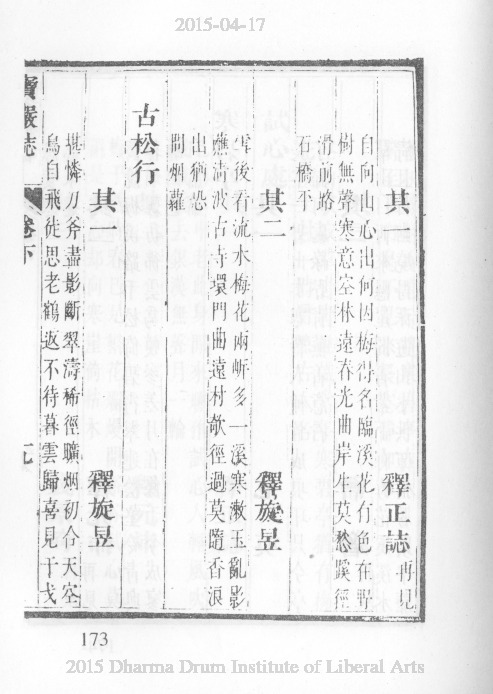 2015-04-17
其一　釋正誌 再見
自向山心出何因梅得名臨溪花有色在野
樹無聲寒意空林遠春光曲岸生莫愁蹊徑
滑前路
石橋平
其二　釋旋昱
雪後看流水梅花兩岍多一溪寒漱玉亂影
蘸清波古寺環門曲遠村欹徑過莫隨香浪
出猶恐
問烟蘿
古松行
其一　釋旋昱
甚憐刀斧盡影斷翠濤稀徑曠烟初合天空
鳥自飛徒思老鶴返不待暮雲歸喜見干戈
寶嚴誌　卷下
173
2015 Dharma Drum Institute of Liberal Arts